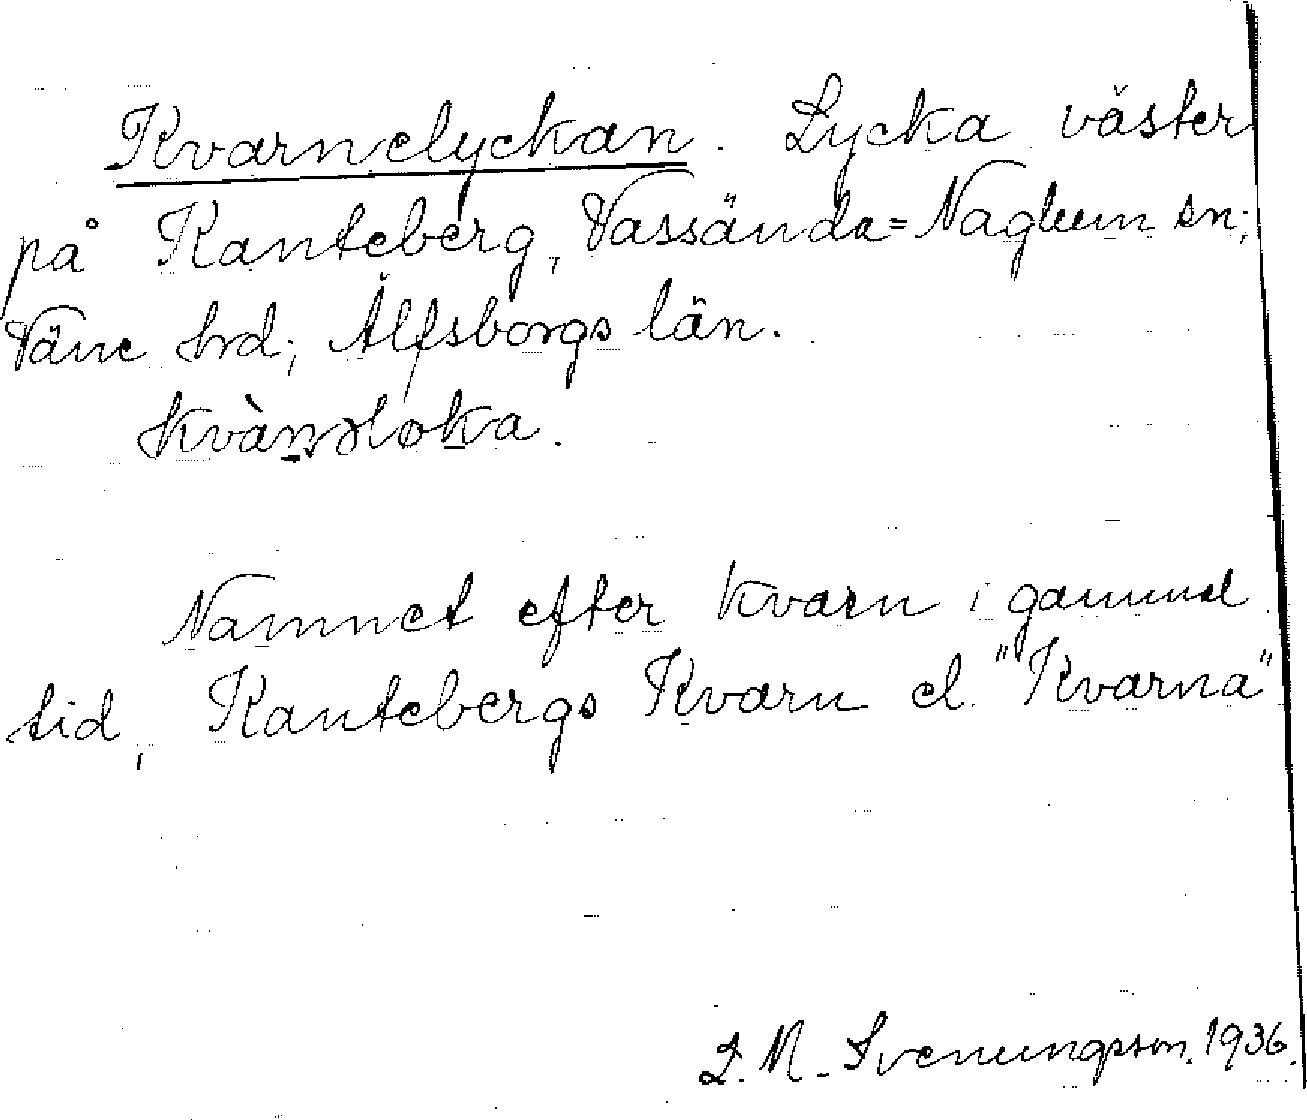 Kvarnelyckan. Lycka väster
på Kanteberg, Vassända=Naglum sn;
Väne hrd; Älfsborgs län.
kvàṇəløka.
Namnet efter kvarn i gammal
tid, Kantebergs Kvarn el. "Kvarna"
L. M. Svenungsson. 1936.